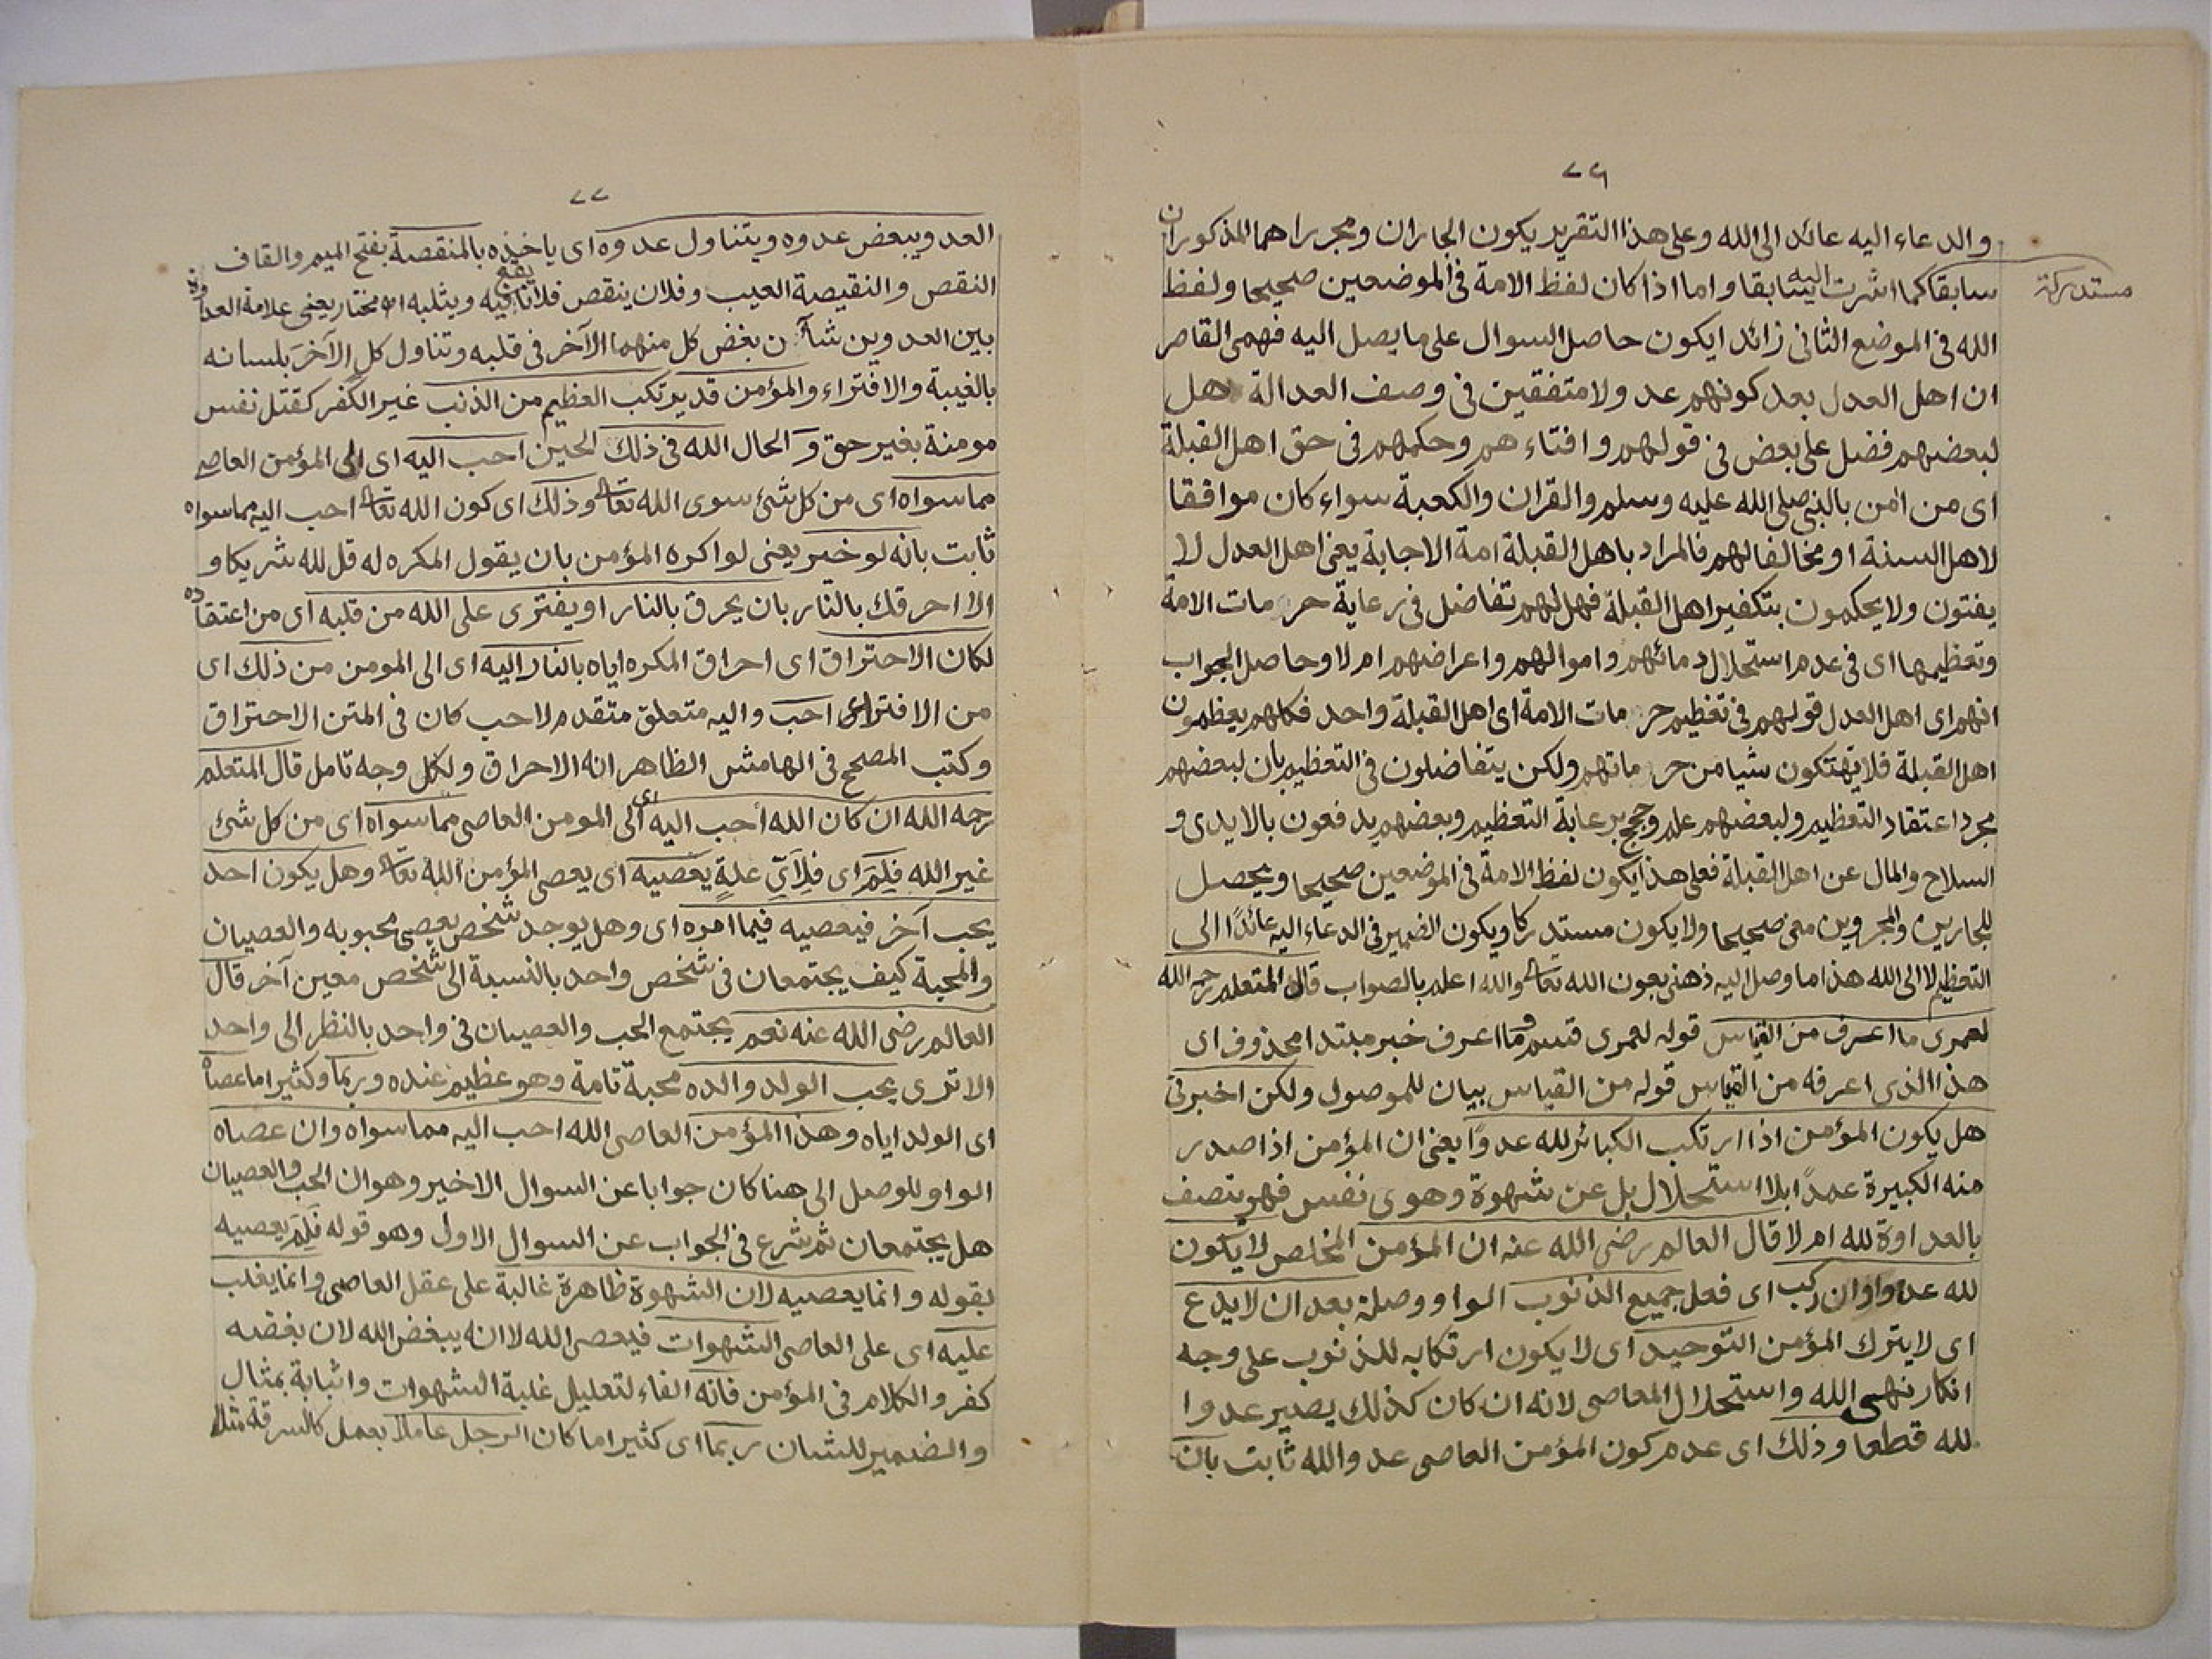 ٧٦
والدعاء اليه عائد الى الله وعلى هذا التقرير يكون الجاران ومجروراهما المذكوران
مستدركة
سابقا كما اشرت اليه سابقا واما اذا كان لفظ الامة فى الموضعين صحيحا ولفظ
الله فى الموضع الثانى زائدا يكون حاصل السوال على ما يصل اليه فهمى القاصر
ان اهل العدل بعد كونهم عدولا متفقين فى وصف العدالة هل
لبعضهم فضل على بعض فى قولهم وافتاءهم وحكمهم فى حق اهل القبلة
اى من امن بالنبى صلى الله عليه وسلم والقران والكعبة سواء كان موافقا
لاهل السنة او مخالفا لهم فالمراد باهل القبلة امة الاجابة يعنى اهل العدل لا
يفتون ولا يحكمون بتكفير اهل القبلة فهل لهم تفاضل فى رعاية حرمات الامة
وتعظيمها اى فى عدم استحلال دمائهم واموالهم واعراضهم ام لا وحاصل الجواب
انهم اى اهل العدل قولهم فى تعظيم حرمات الامة اى اهل القبلة واحد فكلهم يعظمون
اهل القبلة فلا يهتكون شيا من حرماتهم ولكن يتفاضلون فى التعظيم بان لبعضهم
مجرد اعتقاد التعظيم ولبعضهم علم وحجج برعاية التعظيم وبعضهم يدفعون بالايدى و
السلاح والمال عن اهل القبلة فعلى هذا يكون لفظ الامة فى الموضعين صحيحا ويحصل
للجارين والمجرورين معنى صحيحا ولا يكون مستدركا ويكون الضمير فى الدعاء اليه عائدًا الى
التعظيم لا الى الله هذا ما وصل اليه ذهنى بعون الله تعالى والله اعلم بالصواب قال المتعلم رحمه الله
لعمرى ما اعرف من القياس قوله لعمرى قسم وما اعرف خبر مبتدا محذوف اى
هذا الذى اعرفه من القياس قوله من القياس بيان للموصول ولكن اخبرنى
هل يكون المؤمن اذا ارتكب الكبائر لله عدوًا يعنى ان المؤمن اذا صدر
منه الكبيرة عمدًا بلا استحلال بل عن شهوة وهوى نفس فهو يتصف
بالعداوة لله ام لا قال العالم رضى الله عنه ان المؤمن المخلص لا يكون
لله عدوا وان ركب اى فعل جميع الذنوب الواو وصلية بعد ان لا يدع
اى لا يترك المؤمن التوحيد اى لا يكون ارتكابه للذنوب على وجه
انكار نهى الله واستحلال المعاصى لانه ان كان كذلك يصير عدوا
لله قطعا وذلك اى عدم كون المؤمن العاصى عدو الله ثابت بان
٧٧
العدو يبغض عدوه ويتناول عدوه اى ياخذه بالمنقصة بفتح الميم والقاف
النقص والنقيصة العيب وفلان ينقص فلانا يقع فيه ويثلبه اه مختار يعنى علامة العداوة
بين العدوين شآن بغض كل منهما الآخر فى قلبه وتناول كل الآخر بلسانه
بالغيبة والافتراء والمؤمن قد يرتكب العظيم من الذنب غير الكفر كقتل نفس
مومنة بغير حق و الحال الله فى ذلك الحين احب اليه اى الى المؤمن العاصى
مما سواه اى من كل شئ سوى الله تعالى وذلك اى كون الله تعالى احب اليه مما سواه
ثابت بانه لو خير يعنى لو اكره المؤمن بان يقول المكره له قل لله شريكا و
الا احرقك بالنار بان يحرق بالنار او يفترى على الله من قلبه اى من اعتقاده
لكان الاحتراق اى احراق المكره اياه بالنار اليه اى الى المومن من ذلك اى
من الافتراء احب واليه متعلق متقدم لاحب كان فى المتن الاحتراق
وكتب المصحح فى الهامش الظاهر انه الاحراق ولكل وجه تامل قال المتعلم
رحمه الله ان كان الله أحب اليه اى الى المومن العاصى مما سواه اى من كل شئ
غير الله فَلِمَ اى فَلِأَيِّ علةٍ يعصيه اى يعصى المؤمن الله تعالى وهل يكون احد
يحب آخر فيعصيه فيما امره اى وهل يوجد شخص يعصى محبوبه والعصيان
والمحبة كيف يجتمعان فى شخص واحد بالنسبة الى شخص معين آخر قال
العالم رضى الله عنه نعم يجتمع الحب والعصيان فى واحد بالنظر الى واحد
الا ترى يحب الولد والده محبة تامة وهو عظيم عنده وربما وكثيرا ما عصاه
اى الولد اياه وهذا المؤمن العاصى الله احب اليه مما سواه وان عصاه
الواو للوصل الى هنا كان جوابا عن السوال الاخير وهو ان الحب والعصيان
هل يجتمعان ثم شرع فى الجواب عن السوال الاول وهو قوله فَلِمَ يعصيه
بقوله وانما يعصيه لان الشهوة ظاهرة غالبة على عقل العاصى وانما يغلب
عليه اى على العاصى الشهوات فيعصى الله لا انه يبغض الله لان بغضه
كفر والكلام فى المؤمن فانه الفاء لتعليل غلبة الشهوات واثباته بمثال
والضمير للشان ربما اى كثيرا ما كان الرجل عاملا بعمل كالسرقة مثلا